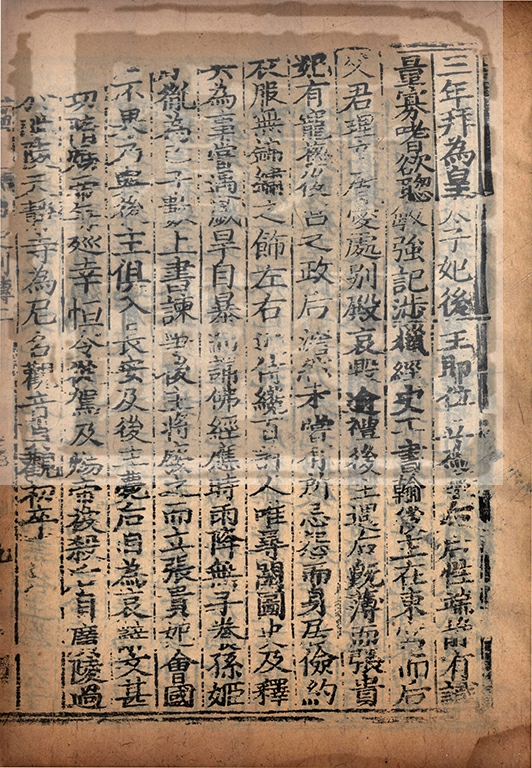 三年拜為皇太子妃後主即位立為皇后后性端靜有識
量寡嗜欲聰敏強記涉獵經史工書翰後主在東宮而后
父君理卒居憂處別殿哀毀逾禮後主遇后既薄而張貴
妃有寵總後宮之政后澹然未嘗有所忌怨而身居儉約
衣服無錦繡之飾左右近侍纔百許人唯尋閱圖史及釋
典為事嘗遇歲旱自暴而誦佛經應時雨降無子養孫姬
子胤為己子數上書諫爭後主將廢之而立張貴妃會國
亡不果乃與後主俱入長安及後主薨后自為哀辭文甚
切隋煬帝每巡幸恒令從駕及煬帝被殺后自廣陵過
於毗陵天靜寺為尼名觀音貞觀初卒